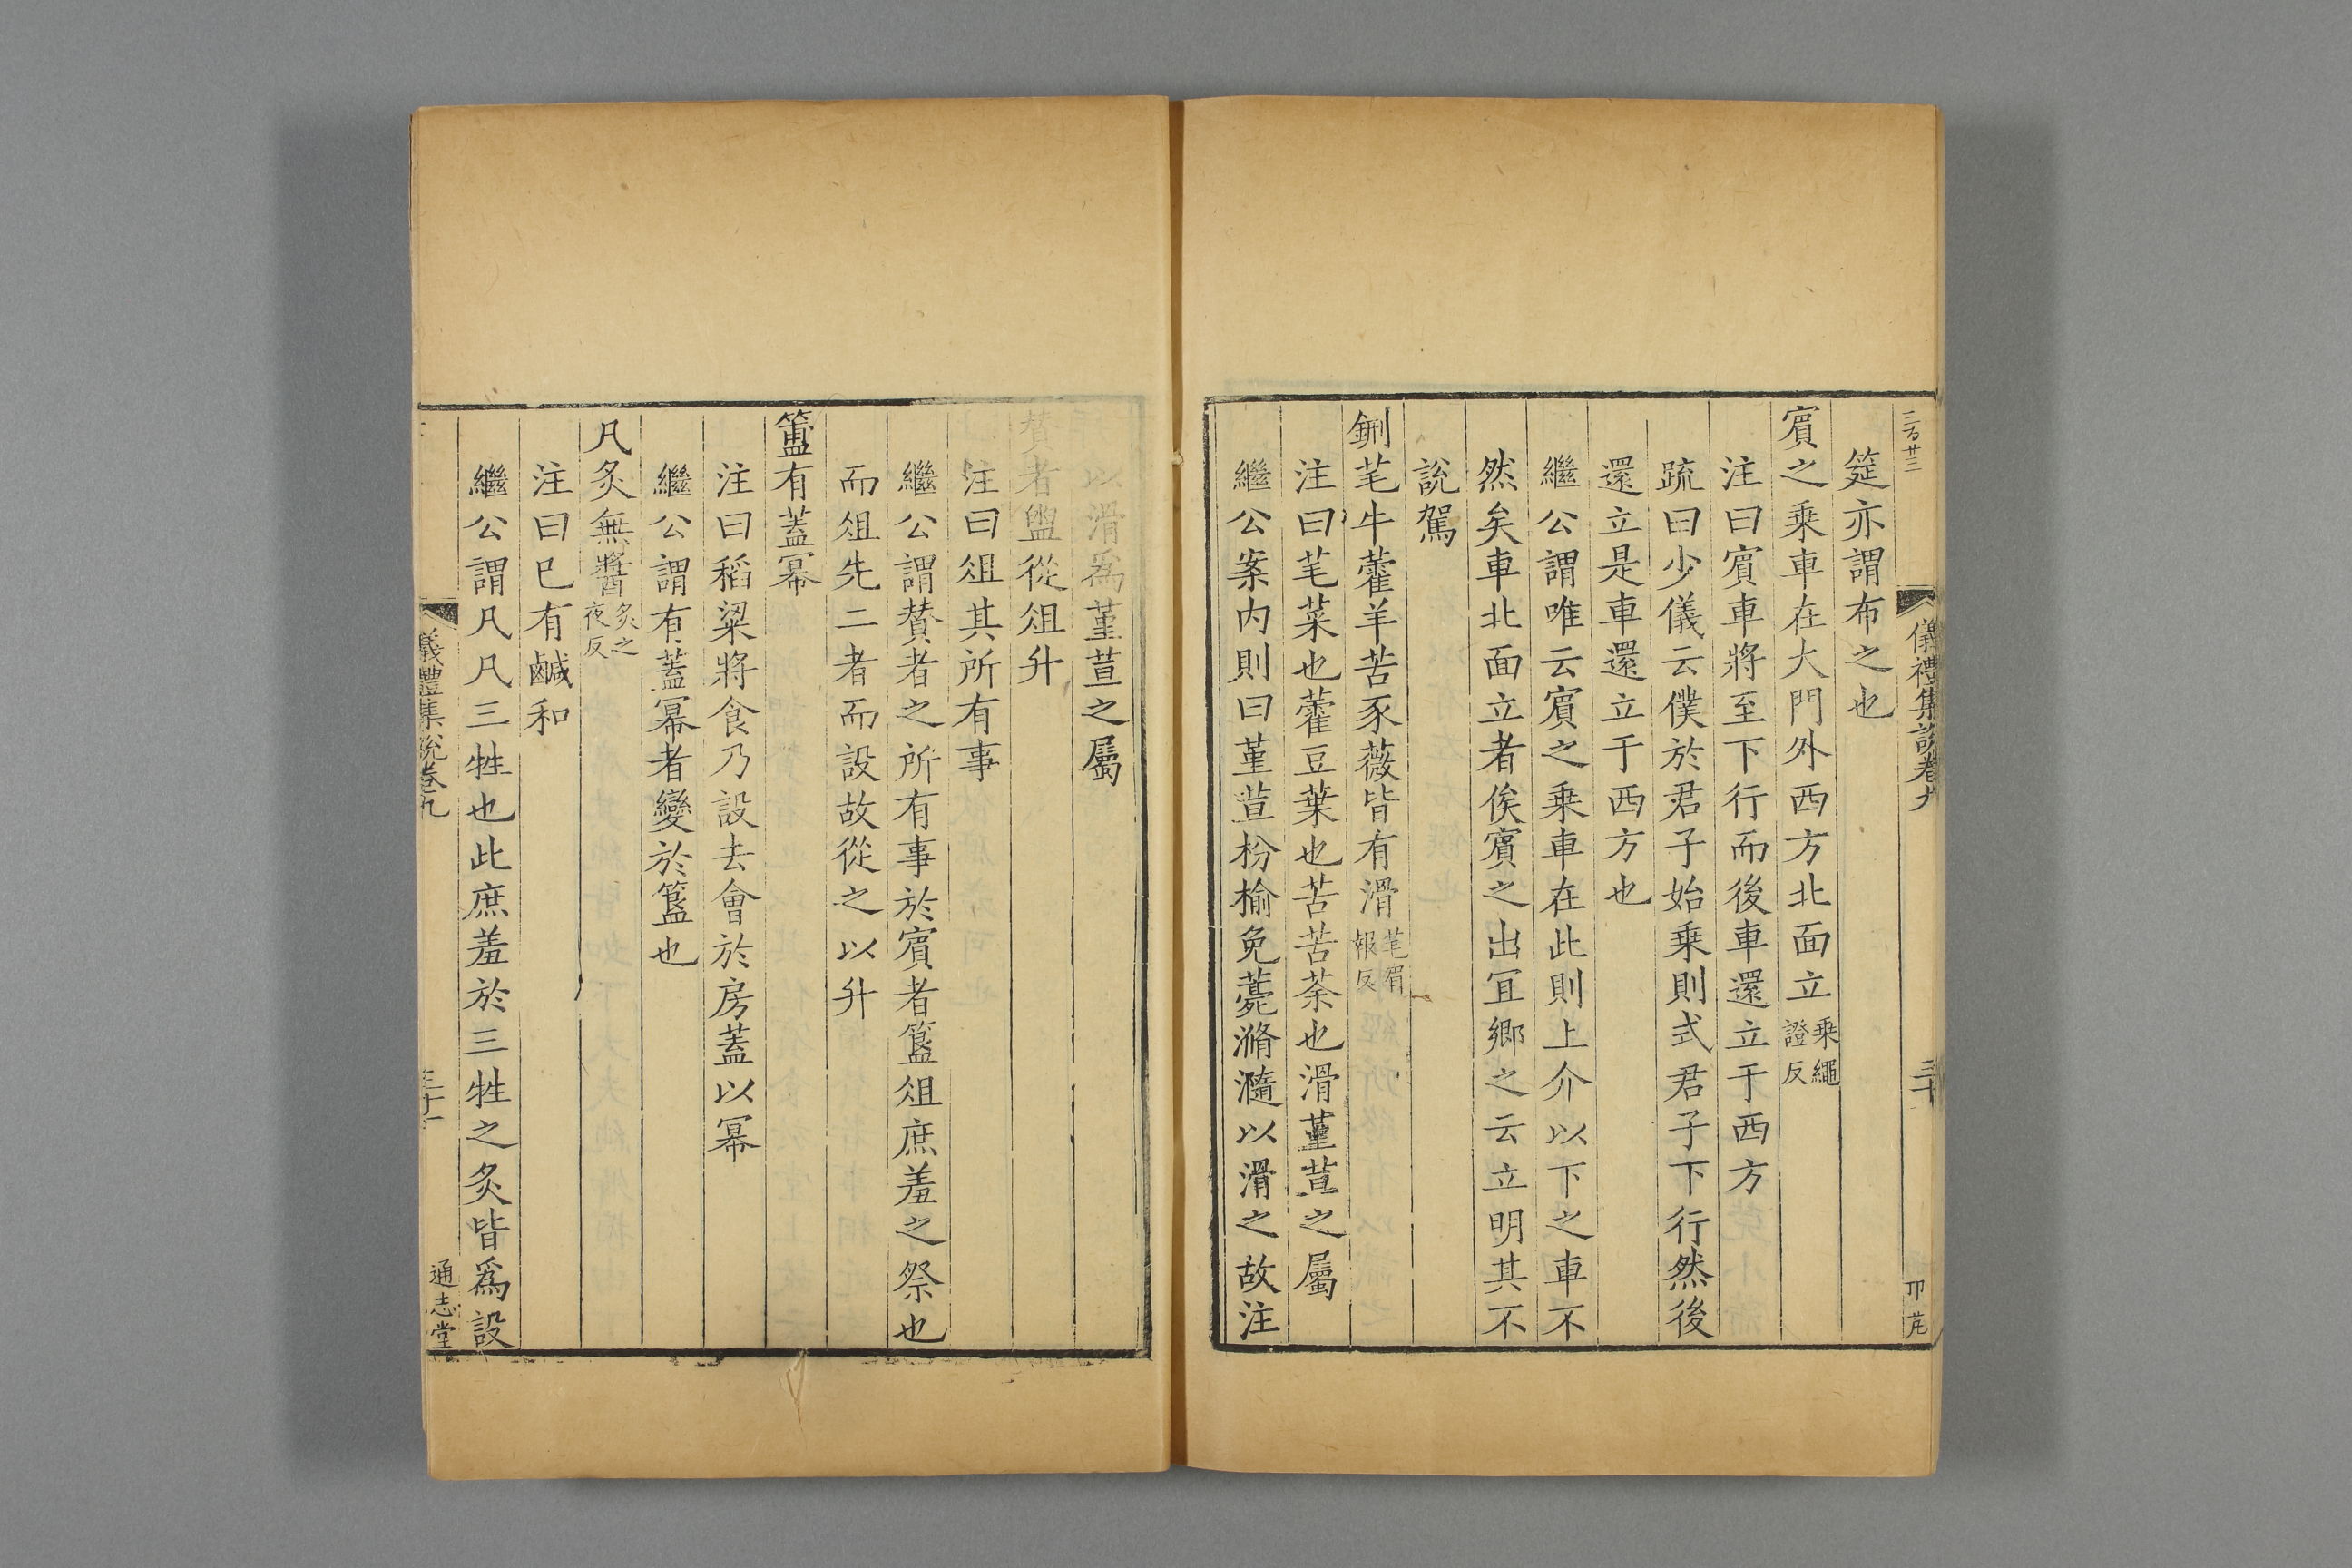 三百廿三
儀禮集說卷九
三十
卬芘
筵亦謂布之也
賔之乗車在大門外西方北面立乗繩證反
注曰賔車將至下行而後車還立于西方
疏曰少儀云僕於君子始乗則式君子下行然後
還立是車還立于西方也
繼公謂唯云賔之乗車在此則上介以下之車不
然矣車北面立者俟賔之出冝鄉之云立明其不
說駕
鉶芼牛藿羊苦豕薇皆有滑芼眉報反
注曰芼菜也藿豆葉也苦苦荼也滑菫荁之屬
繼公案内則曰菫荁枌榆免薧滫瀡以滑之故注
以滑爲菫荁之屬
賛者盥從俎升
注曰俎其所有事
繼公謂賛者之所有事於賔者簋俎庶羞之祭也
而俎先二者而設故從之以升
簠有蓋冪
注曰稻粱將食乃設去會於房蓋以冪
繼公謂有蓋冪者變於簋也
凡炙無醬炙之夜反
注曰已有鹹和
繼公謂凡凡三牲也此庶羞於三牲之炙皆爲設
儀禮集說卷九
三十一
通志堂